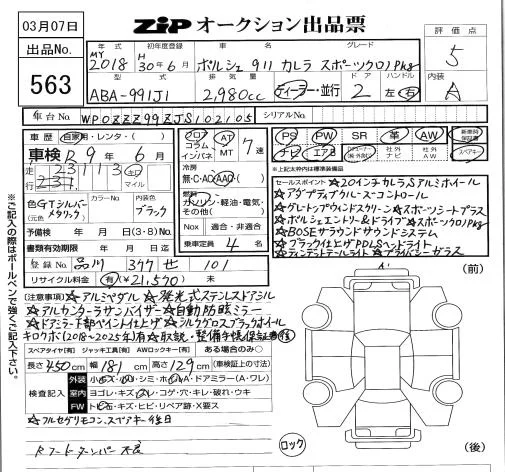 03月07日
ZIPオークション出品票
出品No.
563
評価点
5
内装
A
年式
MY 2018
初年度登録
H 30年6月
車名
グレード
ポルシェ 911 カレラ スポーツクロノPkg
型式
ABA-991J1
排気量
2,980cc
ディーラー・並行
ドア
2
ハンドル
左 右
車台No.
WP0ZZZ99ZJS102105
シリアルNo.
車歴 自家用・レンタ・( )
車検 R 9年 6月
走行
km
マイル
色 GTシルバー
(元色 メタリック)
カラーNo.
内装色
ブラック
予備検 年 月 日(3・8)No.
書類有効期限 年 月 日
登録No. 品川 377 せ 101
リサイクル料金 有(¥21,570) 未
フロア
コラム
インパネ
AT
MT
7速
冷房
無・C・AC・AAC
燃料
ガソリン・軽油・電気・
その他( )
Nox 適合・非適合
乗車定員 4名
PS PW SR 革 AW 新車時保証書
ナビ エアB 社外ナビ 社外AW スペアキー
※上記太枠内は標準装備品
セールスポイント ☆20インチカレラSアルミホイール
☆アダプティブクルーズコントロール
☆グレートップウィンドスクリーン ☆スポーツシートプラス
☆ポルシェエントリー&ドライブ ☆スポーツクロノPkg
☆BOSEサラウンドサウンドシステム
☆ブラック仕上げPDLSヘッドライト
☆ティンテッドテールライト ☆プライバシーガラス
(注意事項) ☆アルミペダル ☆発光式ステンレスドアシル
☆アルカンターラサンバイザー ☆自動防眩ミラー
☆ドアミラー下部ペイント仕上げ ☆シルクグロスブラックホイール
キロクボ(2018〜2025年)有 ☆取説・整備手帳保証書
スペアタイヤ[有] ジャッキ工具[有] AWロックキー[有] ある場合のみ〇
長さ450cm 幅181cm 高さ129cm (車検証上の寸法)
検査記入
外装 小キズ・ ・シミ・ ・ドアミラー(A・ワレ)
室内 ヨゴレ・キズ・スレ・コゲ・穴・キレ・破れ・ウキ
FW トビ石・キズ・ヒビ・リペア跡・X要ス
☆フルセグリモコン、スペアキー後日
Rフードダンパー不良
ロック
(前)
(後)
※ご記入の際はボールペンで強くご記入下さい。